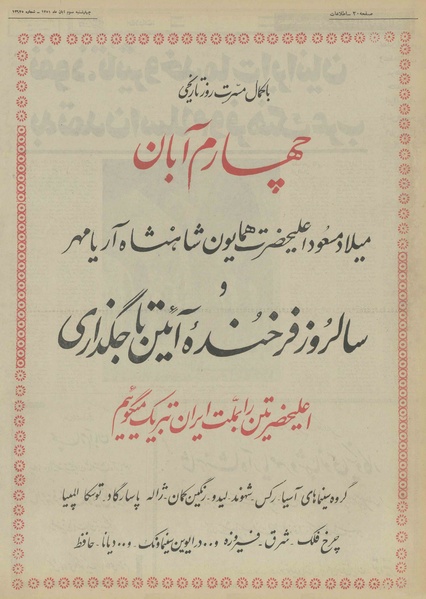 صفحه ۲۰ - اطلاعات
چهارشنبه سوم آبان ماه - شماره
با کمال مسرت روز تاریخی
چهارم آبان
میلاد مسعود اعلیحضرت همایون شاهنشاه آریامهر
و
سالروز فرخنده آئین تاجگذاری
اعلیحضرتین را بملت ایران تبریک میگوئیم
گروه سینماهای آسیا - رکس - شهوند - لیدو - رنگین کمان - ژاله - پاسارگاد - توسکا - المپیا
چرخ فلک - شرق - فیروزه و .. درایوین سینما ونک و .. دیانا - حافظ